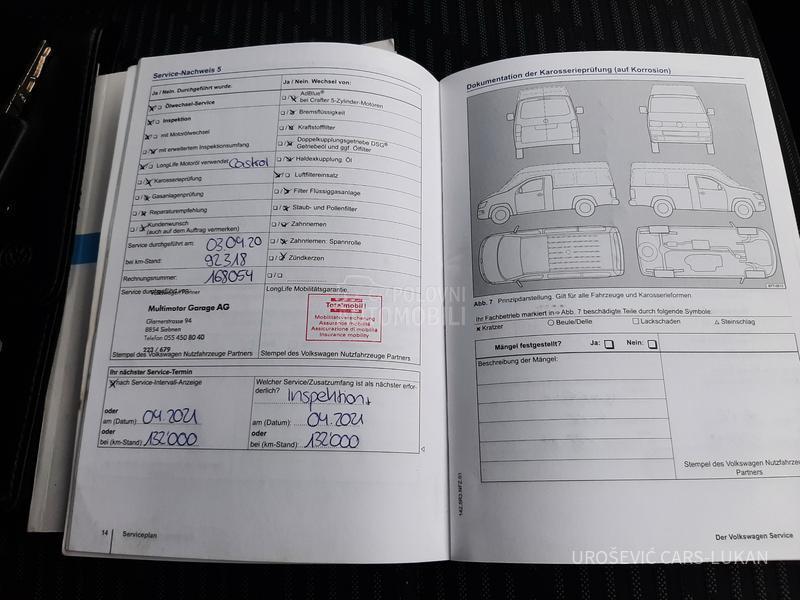 Service-Nachweis 5
Ja / Nein. Durchgeführt wurde:
Ölwechsel-Service
Inspektion
mit Motorölwechsel
mit erweitertem Inspektionsumfang
LongLife Motoröl verwendet Castrol
Karosserieprüfung
Gasanlagenprüfung
Reparaturempfehlung
Kundenwunsch
(auch auf dem Auftrag vermerken)
Service durchgeführt am: 03.09.20
bei km-Stand: 92318
Rechnungsnummer: 168054
Service durchgeführt von:
Volkswagen Partner
Multimotor Garage AG
Glarnerstrasse 94
8854 Siebnen
Telefon 055 450 80 40
223 / 679
Stempel des Volkswagen Nutzfahrzeuge Partners
Ja / Nein. Wechsel von:
AdBlue®
bei Crafter 5-Zylinder-Motoren
Bremsflüssigkeit
Kraftstofffilter
Doppelkupplungsgetriebe DSG®
Getriebeöl und ggf. Ölfilter
Haldexkupplung, Öl
Luftfiltereinsatz
Filter Flüssiggasanlage
Staub- und Pollenfilter
Zahnriemen
Zahnriemen: Spannrolle
Zündkerzen
LongLife Mobilitätsgarantie.
Totalmobil!
Mobilitätsversicherung
Assurance mobilité
Assicurazione di mobilità
Insurance mobility
Stempel des Volkswagen Nutzfahrzeuge Partners
Ihr nächster Service-Termin
nach Service-Intervall-Anzeige
oder
am (Datum): 04.2021
oder
bei (km-Stand): 132'000
Welcher Service/Zusatzumfang ist als nächster erfor-
derlich? Inspektion
am (Datum): 04.2021
oder
bei (km-Stand): 132'000
14 Serviceplan
Dokumentation der Karosserieprüfung (auf Korrosion)
Abb. 7 Prinzipdarstellung. Gilt für alle Fahrzeuge und Karosserieformen
Ihr Fachbetrieb markiert in ⇒ Abb. 7 beschädigte Teile durch folgende Symbole:
Kratzer
Beule/Delle
Lackschaden
Steinschlag
Mängel festgestellt?
Ja:
Nein:
Beschreibung der Mängel:
Stempel des Volkswagen Nutzfahrzeuge
Partners
142.5R3.NFZ.51
Der Volkswagen Service
POLOVNI
AUTOMOBILI
UROŠEVIĆ CARS-LUKAN